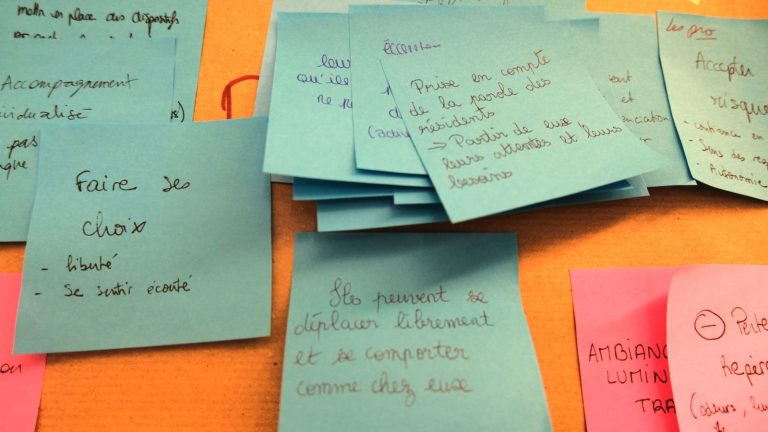 mettre en place des dispositifs
Accompagnement
pas
Faire ses
choix
- liberté
- Se sentir écouté
qu'ils
ne
Prise en compte
de la parole des
résidents
→ Partir de eux
leurs attentes et leurs
besoins
et
Les pro
Accepter
risque
- confiance en
- Sens des
- Autonomie
Ils peuvent se
déplacer librement
et se comporter
comme chez eux
on
AMBIANC
LUMIN
TRA
⊖ Perte
Repèr